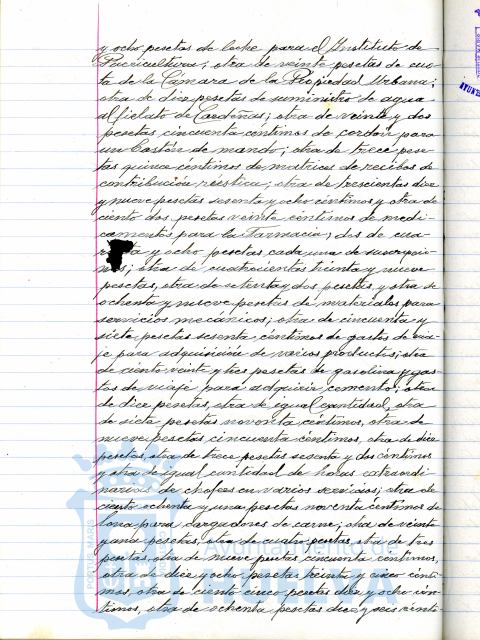 y ocho pesetas de leche para el Instituto de
Puericultura; otra de veinte pesetas de cuo-
ta de la Cámara de la Propiedad Urbana;
otra de diez pesetas de suministro de agua
al fielato de Cardeñas; otra de veinte y dos
pesetas cincuenta céntimos de cordón para
un bastón de mando; otra de trece pese-
tas quince céntimos de matrices de recibos de
contribución rústica; otra de trescientas diez
y nueve pesetas sesenta y ocho céntimos y otra de
ciento dos pesetas veinte céntimos de medi-
camentos para la Farmacia; dos de cua-
y ocho pesetas cada una de suscripcio-
nes; otra de cuatrocientas treinta y nueve
pesetas, otra de setenta y dos pesetas, y otra de
ochenta y nueve pesetas de materiales para
servicios mecánicos; otra de cincuenta y
siete pesetas sesenta céntimos de gastos de via-
je para adquisición de varios productos; otra
de ciento veinte y tres pesetas de gasolina y gas-
tos de viaje para adquirir cemento; otra
de diez pesetas, otra de igual cantidad, otra
de siete pesetas noventa céntimos, otra de
nueve pesetas cincuenta céntimos, otra de diez
pesetas, otra de trece pesetas sesenta y dos céntimos
y otra de igual cantidad de horas extraordi-
narias de chofers en varios servicios; otra de
ciento ochenta y una pesetas noventa céntimos de
lona para cargadores de carne; otra de veinte
y una pesetas, otra de cuatro pesetas, otra de tres
pesetas, otra de nueve pesetas cincuenta céntimos,
otra de diez y ocho pesetas treinta y cinco cénti-
mos, otra de ciento cinco pesetas diez y ocho cén-
timos, otra de ochenta pesetas diez y seis cénti-
Ayuntamiento de
HUELVA
PORTUS MARIS